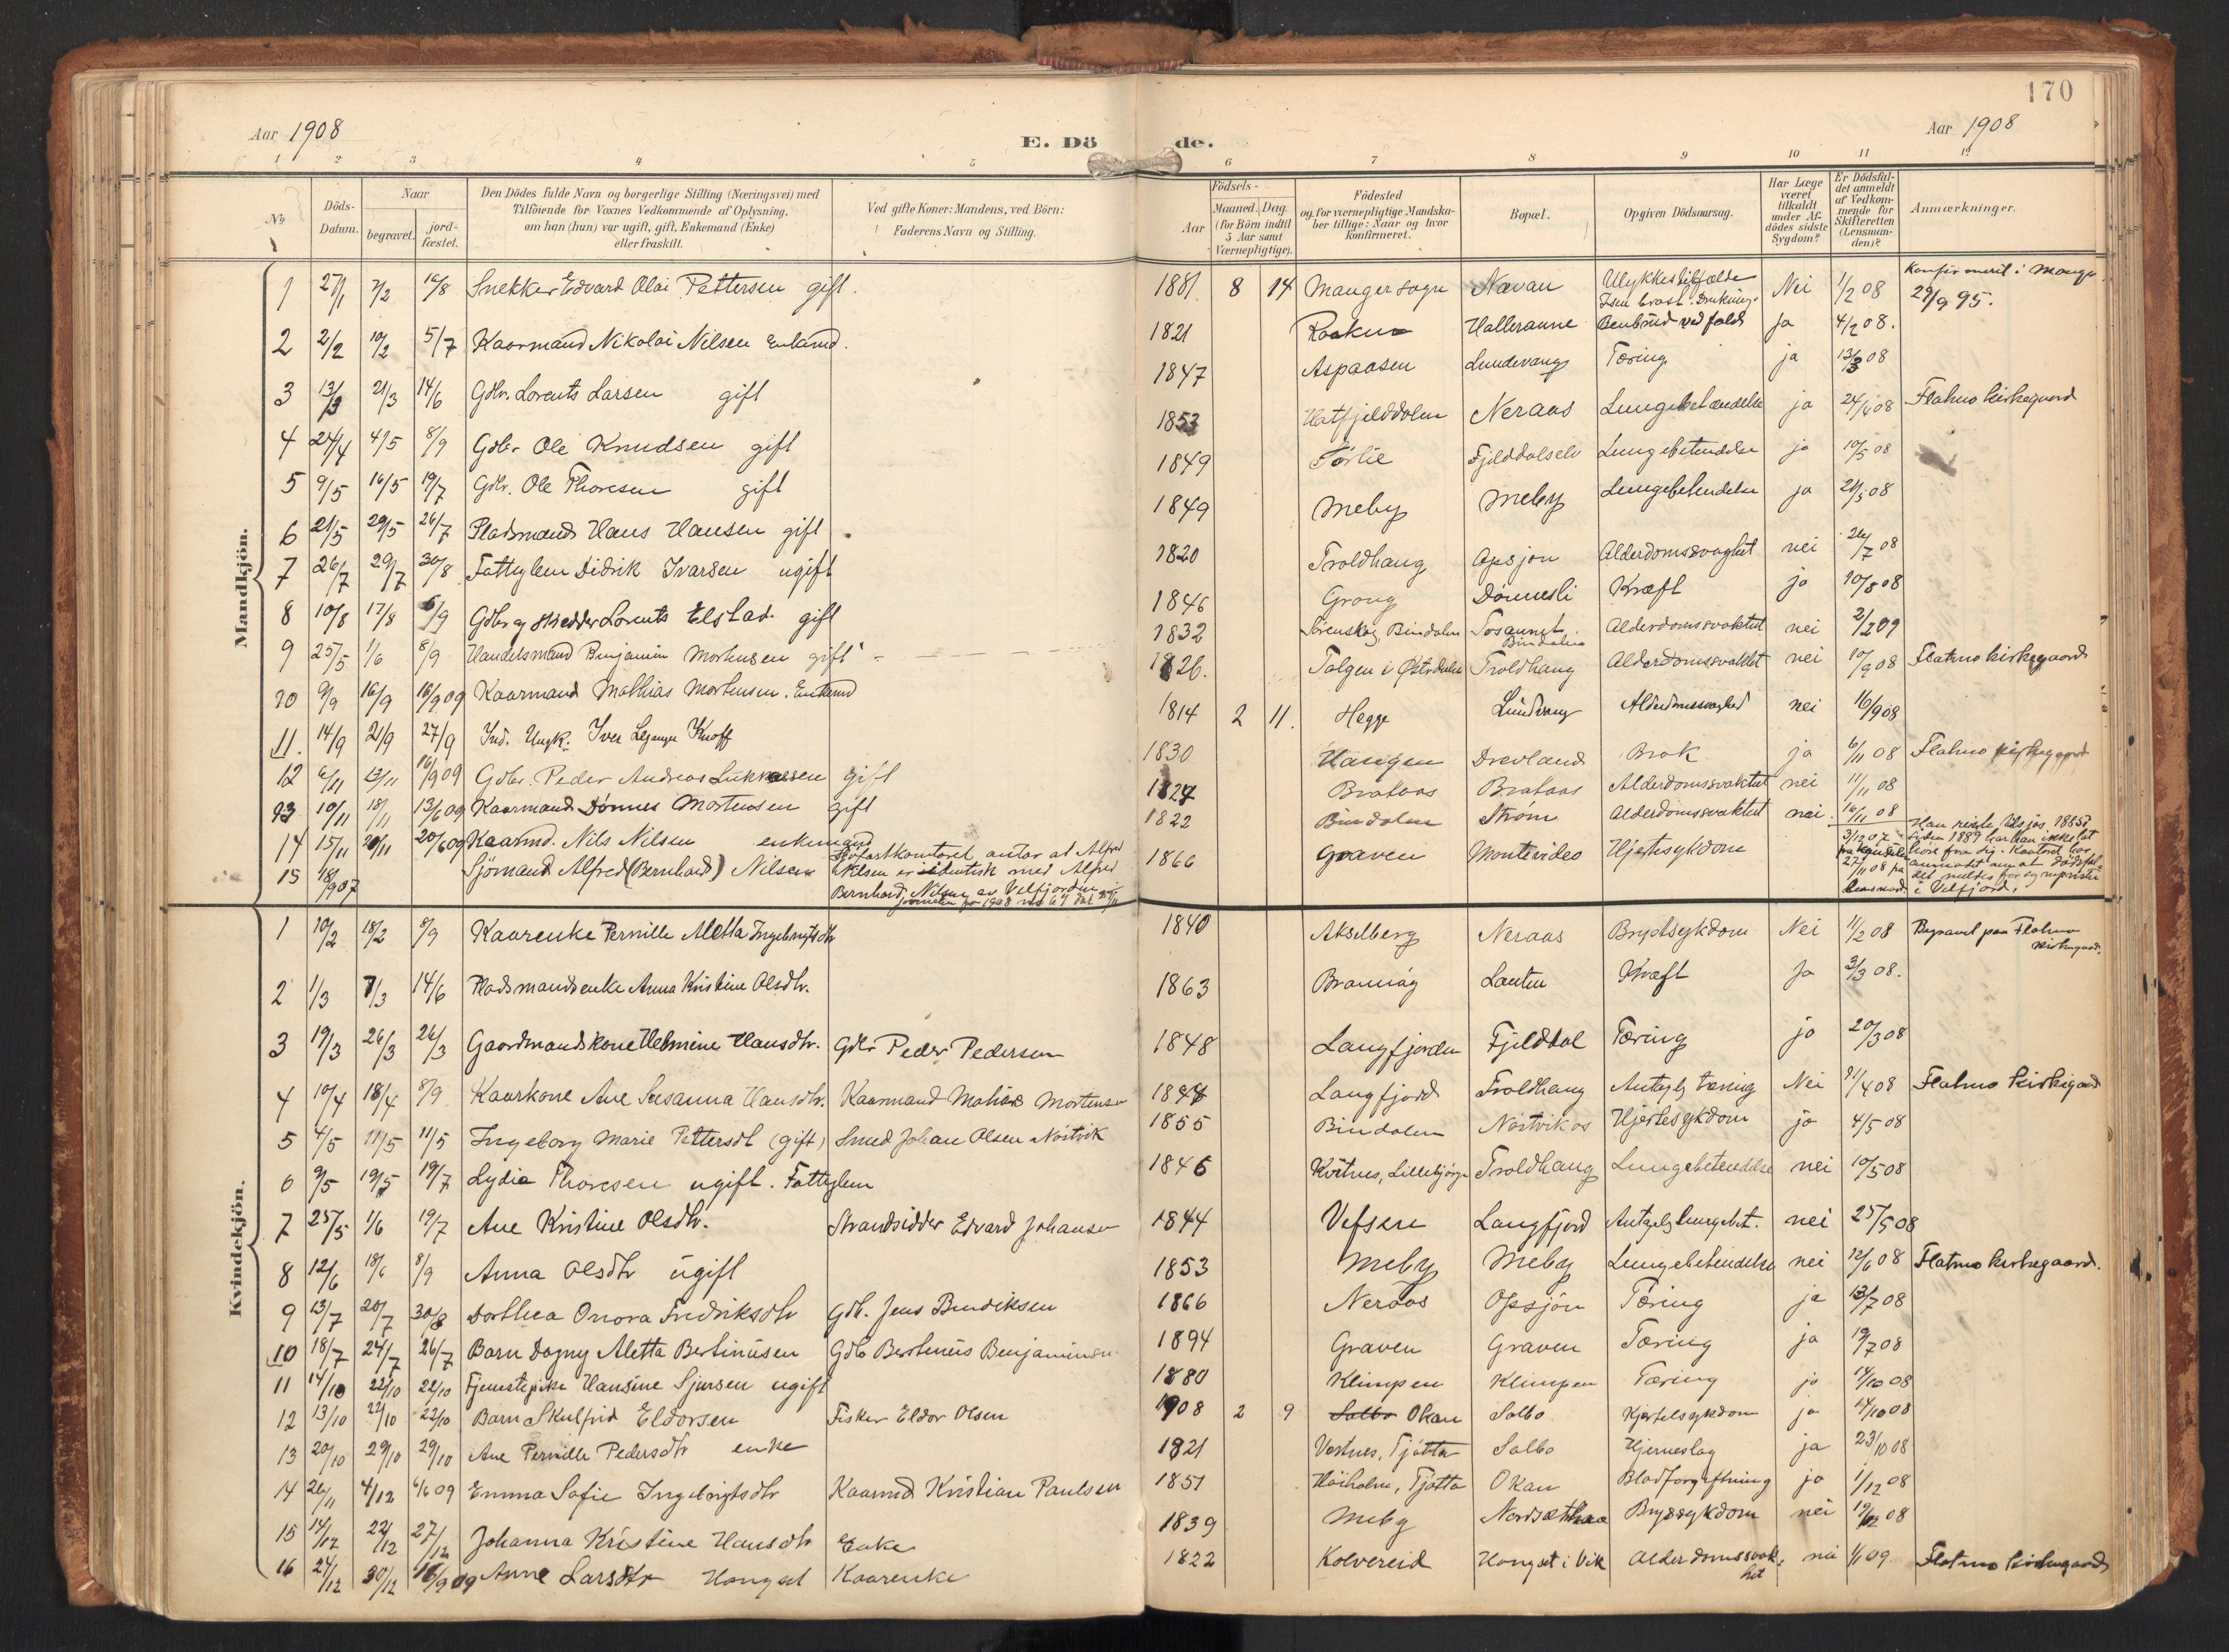 170
Aar 1908
E. Dö de.
Aar 1908
1 2 3 4 5 6 7 8 9 10 11 12
No
Döds-Datum.
Naar
begravet.
jord-fæstet.
Den Dödes fulde Navn og borgerlige Stilling (Næringsvei) med
Tilföiende for Voxnes Vedkommende af Oplysning,
om han (hun) var ugift, gift, Enkemand (Enke)
eller fraskilt.
Ved gifte Koner: Mandens, ved Börn:
Faderens Navn og Stilling.
Födsels-
Aar
Maaned. Dag.
(for Börn indtil
5 Aar samt
Værnepligtige).
Födested
og for værnepligtige Mandska-
ber tillige: Naar og hvor
konfirmeret.
Bopæl.
Opgiven Dödsaarsag.
Har Læge
været
tilkaldt
under Af-
dödes sidste
Sygdom?
Er Dödsfal-
det anmeldt
af Vedkom-
mende for
Skifteretten
(Lensman-
den)?
Anmærkninger.
Mandkjön.
1 27/1 7/2 16/8 Snekker Edvard Olai Pettersen gift. 1881 8 14 Manger sogn Navan Ulykkestilfælde Isen brast. Drukning. Nei 1/2 08 Konfirmert i Manger 29/9 95.
2 2/2 10/2 5/7 Kaarmand Nikolai Nilsen Enkemd. 1821 Halleranne Benbrud ved fald Ja 4/2 08.
3 13/3 21/3 14/6 Gdbr. Lorents Larsen gift 1847 Aspaasen Lundevang Tæring ja 13/3 08
4 24/4 4/5 8/9 Gdbr Ole Knudsen gift 1853 Hatfjelddalen Neraas Lungebetændelse ja 24/4 08 Flatmo kirkegaard
5 9/5 16/5 19/7 Gdbr. Ole Thoresen gift 1849 Tørlie Fjelddalselv Lungebetendelse ja 10/5 08
6 21/5 29/5 26/7 Pladsmand Hans Hansen gift 1849 Meby Meby Lungebetendelse ja 21/5 08
7 26/7 29/7 30/8 Fattiglem Didrik Ivarsen ugift 1820 Troldhaug Opsjon Alderdomssvaghet nei 26/7 08
8 10/8 17/8 6/9 Gdbr og skredder Lorents Elstad gift 1846 Grong Dønnesli Kræft ja 10/8 08
9 25/5 1/6 8/9 Handelsmand Benjamin Mortensen gift 1832 Sørenskog Bindalen Bindalen Alderdomssvakhet nei 2/2 09
10 9/9 16/9 16/9 09 Kaarmand Mathias Mortensen. Enkemd 1826. Tolgen i Østerdalen Troldhaug Alderdomssvakhet nei 10/9 08 Flatmo kirkegaard
11. 14/9 21/9 27/9 Ind. Ungk. Iver Knoff 1814 2 11. Hegge Lundvang Alderdomssvaghed nei 16/9 08
12 6/11 13/11 16/9 09 Gdbr. Peder Andreas Lukkassen gift 1830 Haugen Drevland Brok ja 6/11 08 Flatmo kirkegaard
13 10/11 18/11 13/6 09 Kaarmand Dønnes Mortensen gift 1827 Brataas Brataas Alderdomssvakhet nei 11/11 08
14 15/11 20/11 20/6 09 Kaarmd. Nils Nilsen enkemand 1822 Bindalen Strøm Alderdomssvakhet nei 16/11 08
15 18/9 07 Sjømand Alfred (Bernhard) Nilsen Sjøfartkontoret antar at Alfred Nilsen er identisk med Alfred Bernhard Nilsen av Velfjorden 1866 Graven Montevideo Hjertesykdom 3/12 07 27/11 08 Han reiste tilsjøs 1885. Siden 1889 har han ikke lat høre fra sig. Kontoret har anmodet om at dødsfaldet meldes for i Velfjord.
Kvindekjön.
1 10/2 18/2 8/9 Kaarenke Pernille Aletta Ingebrigtsdtr 1840 Akselberg Neraas Brystsykdom Nei 11/2 08 Begravet paa Flatmo kirkegaard.
2 1/3 7/3 14/6 Pladsmandsenke Anna Kristine Olsdtr. 1863 Lauten Kræft Ja 3/3 08.
3 19/3 26/3 26/3 Gaardmandskone Helmine Hansdtr. Gdbr Peder Pedersen 1848 Langfjorden Fjelddal Tæring ja 20/3 08
4 10/4 18/4 8/9 Kaarkone Ane Susanna Hansdtr. Kaarmand Mathias Mortensen Langfjord Troldhaug Antagelig tæring Nei 11/4 08 Flatmo kirkegaard
5 4/5 11/5 11/5 Ingeborg Marie Pettersdt (gift) Smed Johan Olsen Nøstvik 1855 Bindalen Nøstvikos Hjertesykdom ja 4/5 08
6 9/5 19/5 19/7 Lydia Thoresen ugift. Fattiglem 1846 Troldhaug Lungebetendelse nei 10/5 08
7 25/5 1/6 19/7 Ane Kristine Olsdtr. Strandsidder Edvard Johansen 1844 Vefsen Langfjord Antagelig lungebet. nei 25/5 08
8 12/6 18/6 8/9 Anna Olsdtr ugift 1853 Meby Meby Lungebetendelse nei 12/6 08 Flatmo kirkegaard.
9 13/7 20/7 30/8 Dorthea Onora Fredriksdtr Gdb. Jens Bendiksen 1866 Neraas Opsjøn Tæring ja 13/7 08
10 18/7 24/7 26/7 Barn Dagny Aletta Bertinusen Gdb Bertinus Benjaminsen 1894 Graven Graven Tæring ja 19/7 08
11 14/10 22/10 22/10 Tjenestepike Hansine Sjursen ugift 1880 Klimpen Klimpen Tæring ja 14/10 08
12 13/10 22/10 22/10 Barn Skulfrid Eldorsen Fisker Eldor Olsen 1908 2 9 Salbo Okan Salbo Hjertelsykdom ja 14/10 08
13 20/10 29/10 29/10 Ane Pernille Pedersdtr enke 1821 Vestnes, Tjøtta Salbo Hjerneslag ja 23/10 08
14 26/11 4/12 6/6 09 Emma Sofie Ingebrigtsdtr Kaarmd Kristian Paulsen 1851 Høiholm, Tjøtta Okan Blodforgiftning ja 1/12 08
15 14/12 22/12 27/12 Johanna Kristine Hansdtr Enke 1839 Meby Brystsykdom nei 19/12 08
16 24/12 30/12 16/9 09 Anne Larsdtr Hongset Kaarenke 1822 Kolvereid Hongset i Vik Alderdomssvakhet nei 1/1 09. Flatmo kirkegaard